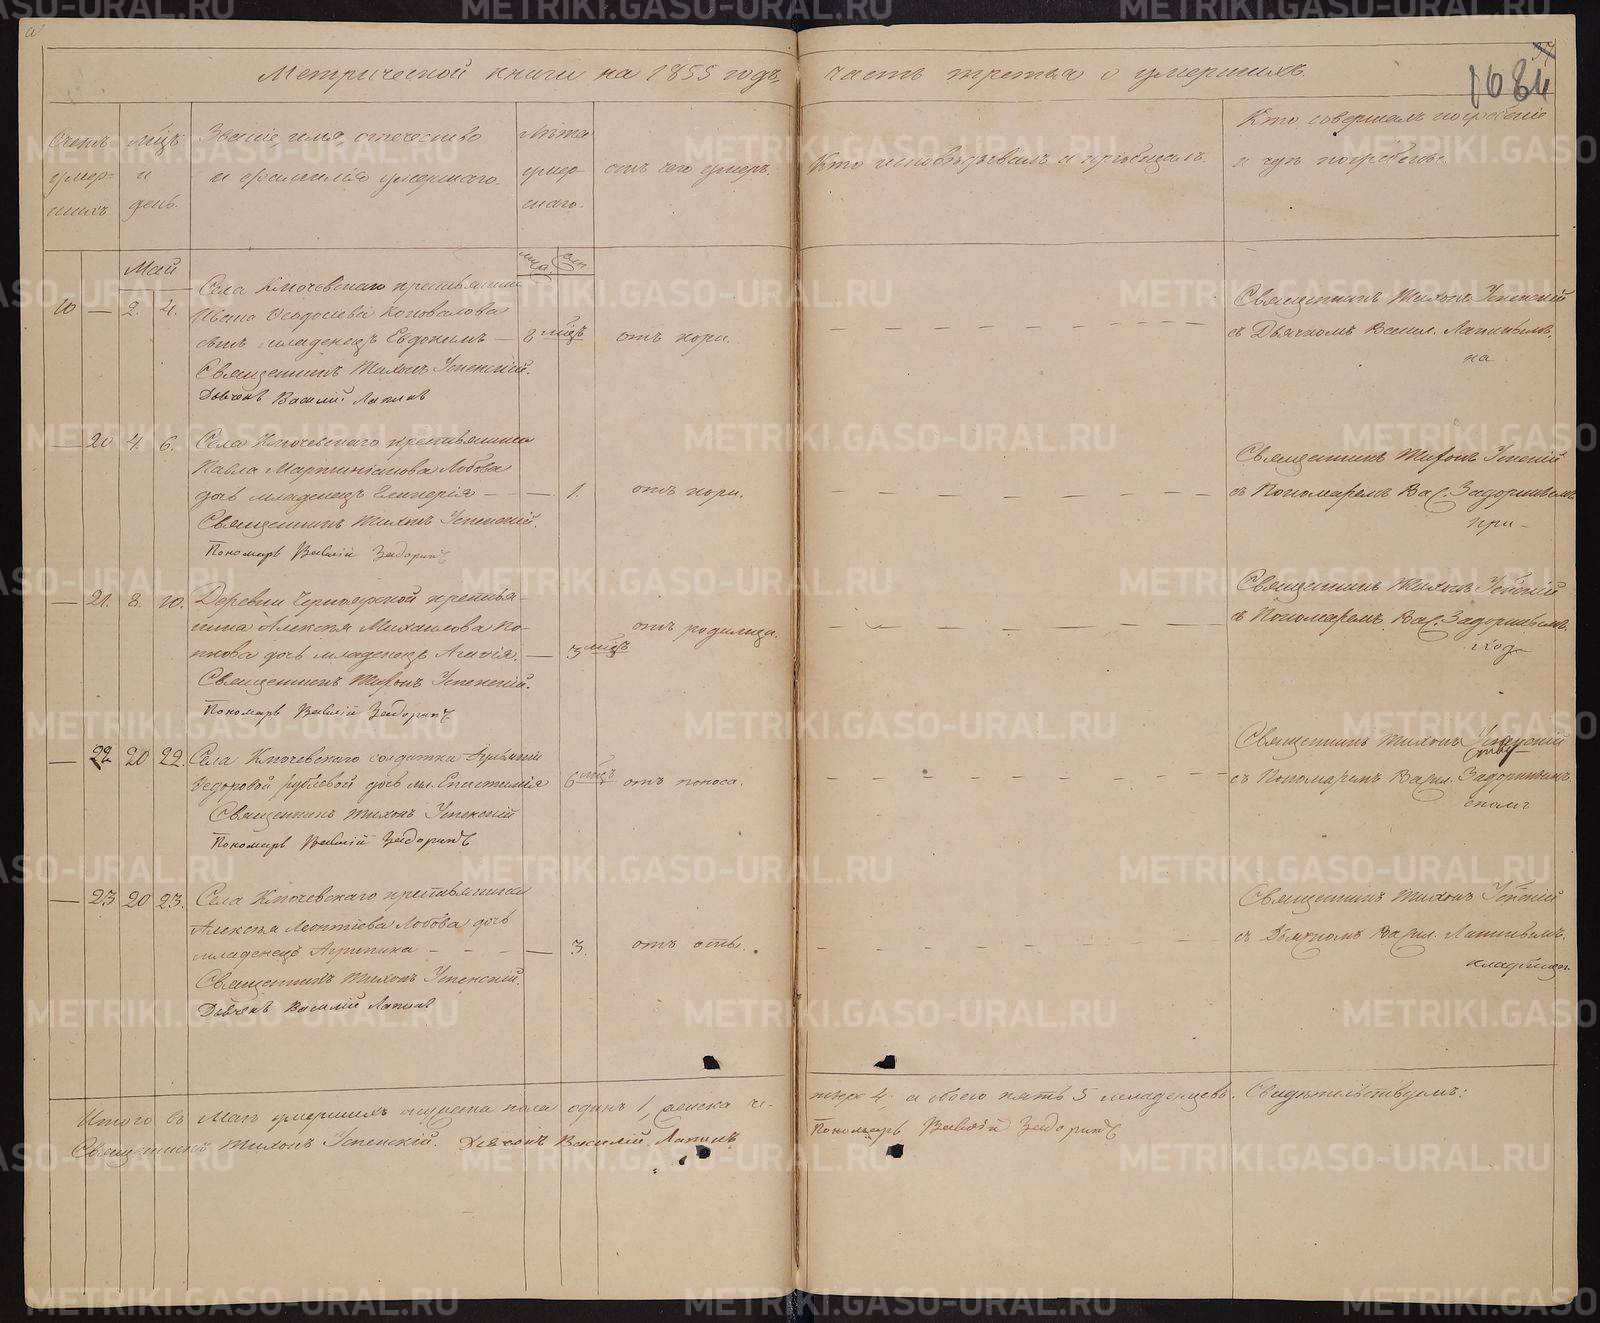 Метрической книги на 1855 годъ, часть третья о умершихъ.
1684
Счетъ умер- шихъ.
мѣцъ и день.
Званіе, имя, отечество
и фамилія умершаго.
Лѣта умер- шаго.
отъ чего умеръ.
Кто исповѣдывалъ и пріобщалъ.
Кто совершалъ погребеніе
и гдѣ погребены.
Май
10 — 2. 4.
Села Ключевскаго крестьянина
Ивана Ѳеодосіева Коновалова
сынъ младенецъ Евдокимъ —
8 мѣцъ
отъ кори.
Священникъ Тихонъ Успенскій.
Дьячекъ Василій Лапинъ
Священникъ Тихонъ Успенскій
съ Дьячкомъ Васил. Лапинымъ.
на
— 20 4. 6.
Села Ключевскаго крестьянина
Павла Мартиніанова Лобова
дочь младенецъ Гликерія — — 1. отъ кори.
Священникъ Тихонъ Успенскій.
Пономарь Василій Задоринъ
Священникъ Тихонъ Успенскій
съ Пономаремъ Вас. Задоринымъ.
при-
— 21. 8. 10.
Деревни Черноярской крестья-
нина Алексѣя Михаилова По-
пкова дочь младенецъ Агапія. — 3 мѣцъ
отъ родимца.
Священникъ Тихонъ Успенскій.
Пономарь Василій Задоринъ
Священникъ Тихонъ Успенскій
съ Пономаремъ Вас. Задоринымъ.
ход-
— 22 20 22.
Села Ключевскаго солдатки
Ѳедоровой Рублевой дочь мл. 6 мѣцъ отъ поноса.
Священникъ Тихонъ Успенскій
Пономарь Василій Задоринъ
Священникъ Тихонъ Успенскій
съ Пономаремъ Васил. Задоринымъ.
скомъ
— 23 20 23.
Села Ключевскаго крестьянина
Алексѣя Леонтіева Лобова дочь
младенецъ Агрипина — — — 3. отъ оспы.
Священникъ Тихонъ Успенскій.
Дьячекъ Василій Лапинъ
Священникъ Тихонъ Успенскій
съ Дьячкомъ Васил. Лапинымъ.
кладбищѣ.
Итого въ Маѣ умершихъ мужеска пола одинъ 1, женска че-
тыре 4, а обоего пять 5 младенцевъ. Свидѣтельствуемъ:
Священникъ Тихонъ Успенскій. Дьячекъ Василій Лапинъ
Пономарь Василій Задоринъ
METRIKI.GASO-URAL.RU